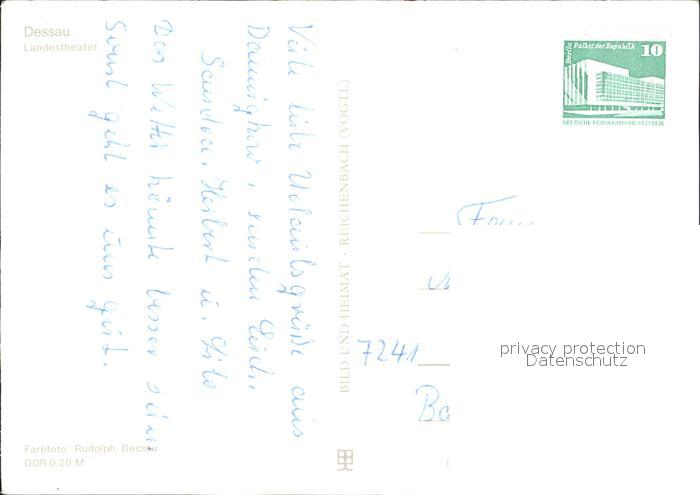 Dessau
Landestheater
Viele liebe Urlaubsgrüße aus
senden Euch,
Sandra, Heibert u. Lilo
Das Wetter könnte besser sein
Sonst geht es uns gut.
Farbfoto: Rudolph, Dessau
DDR 0,20 M
BILD UND HEIMAT · REICHENBACH (VOGTL)
Berlin
Palast der Republik
10
DEUTSCHE DEMOKRATISCHE REPUBLIK
7241
privacy protection
Datenschutz